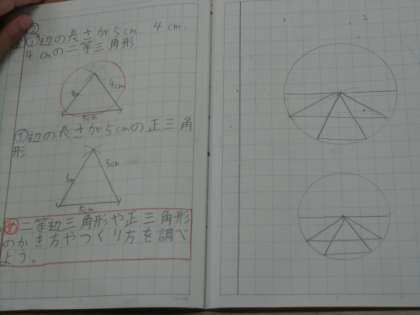 ②辺の長さが5cm 4cm
4cmの二等三角形
4cm
5cm
①辺の長さが5cmの正三角
形
5cm
5cm
二等辺三角形や正三角形
のかき方やつくり方を調べ
よう。